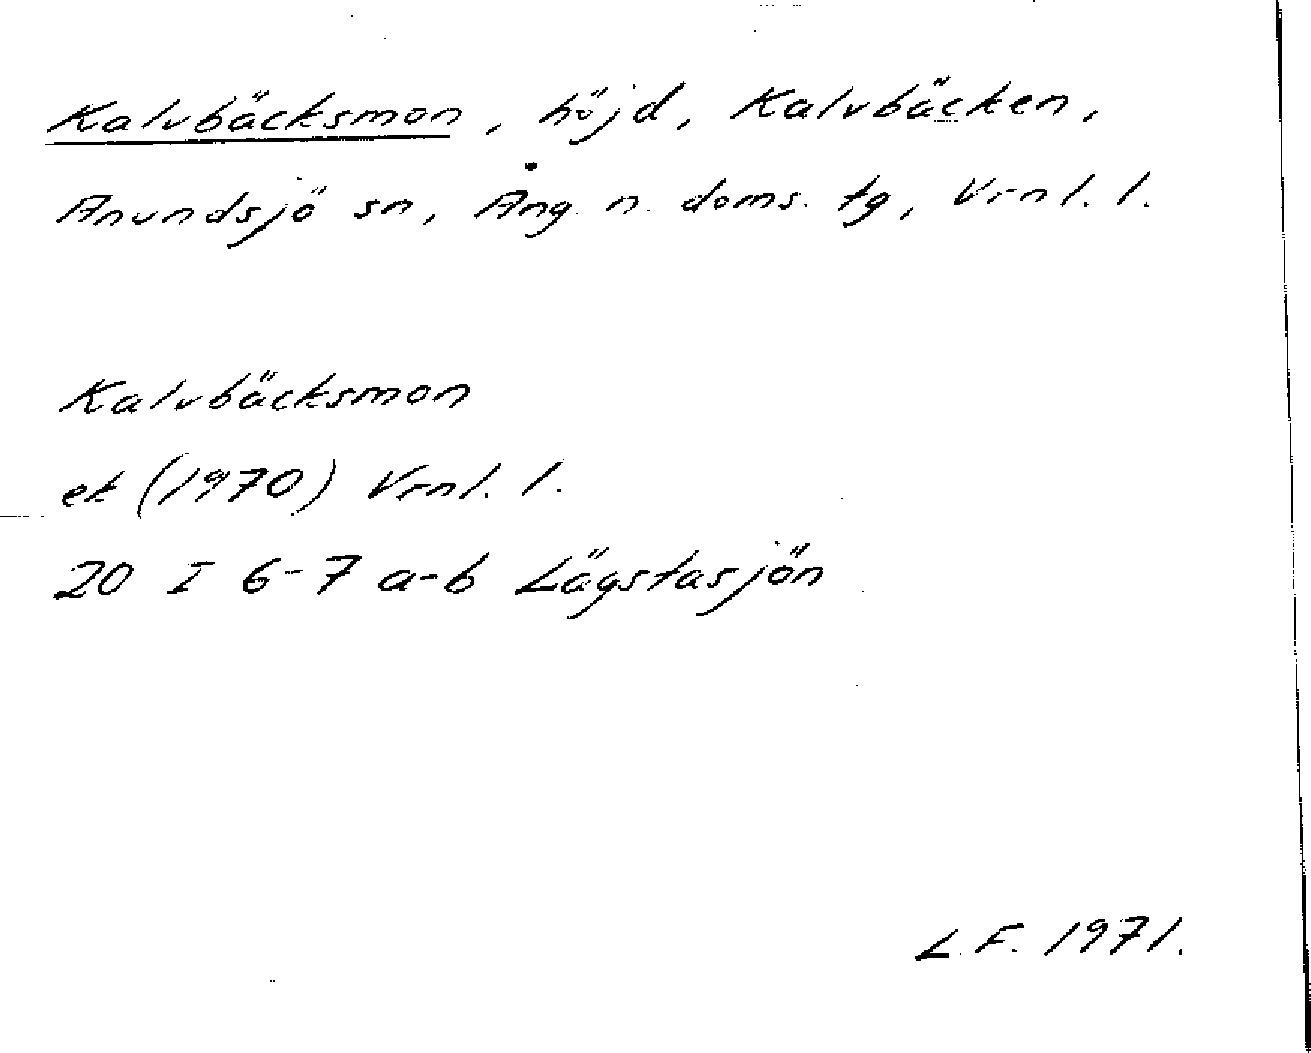 Kalvbäcksmon, höjd, Kalvbäcken,
Anundsjö sn, Ång. n. doms. tg, Vrnl. l.
Kalvbäcksmon
ek (1970) Vrnl. l.
20 I 6-7 a-b Lägstasjön
L.F. 1971.